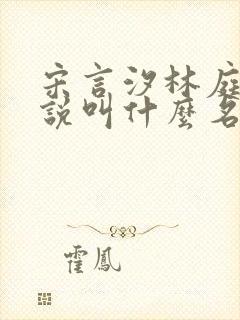 宋言汐林庭
說叫什麼名
霍鳳